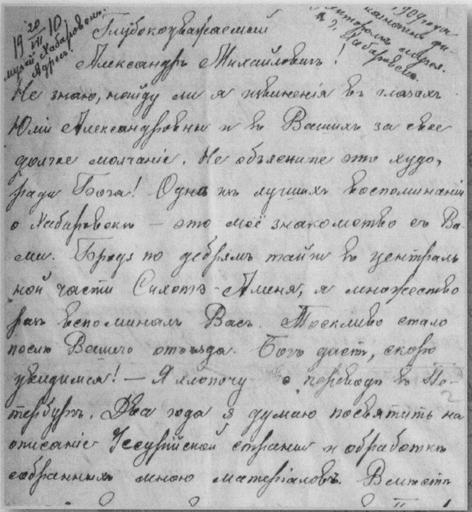 19 20/VII 10
Музей. Хабаровск.
Адрес
1909 года
Хабаровска.
Глубокоуважаемый
Александръ Михайловичъ!
Не знаю, найду ли я извиненія въ глазахъ
Юліи Александровны и въ Вашихъ за свое
долгое молчаніе. Не объясните это худо,
ради Бога! Одна изъ лучшихъ воспоминаній
о Хабаровскѣ – это моё знакомство съ Ва-
ми. Бродя по дебрямъ тайги въ централь-
ной части Сихотэ-Алиня, я множество
разъ вспоминалъ Васъ. Тоскливо стало
послѣ Вашего отъѣзда. Богъ дастъ, скоро
увидимся! – Я хлопочу о переводѣ въ Пе-
тербургъ. Два года я думаю посвятить на
описаніе Уссурійской страны и обработкѣ
собранныхъ мною матеріаловъ. Вместѣ